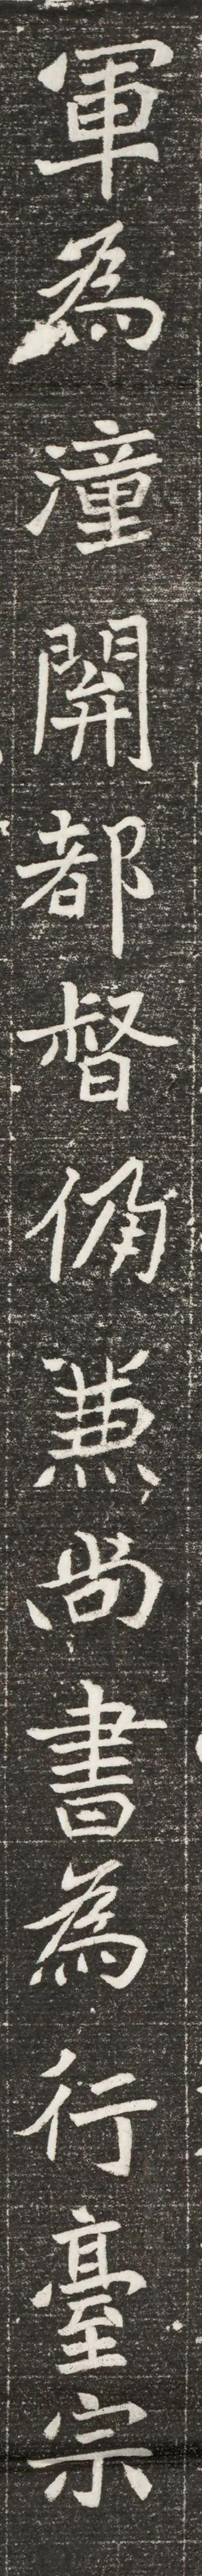 軍為潼關都督兼尚書為行臺宗